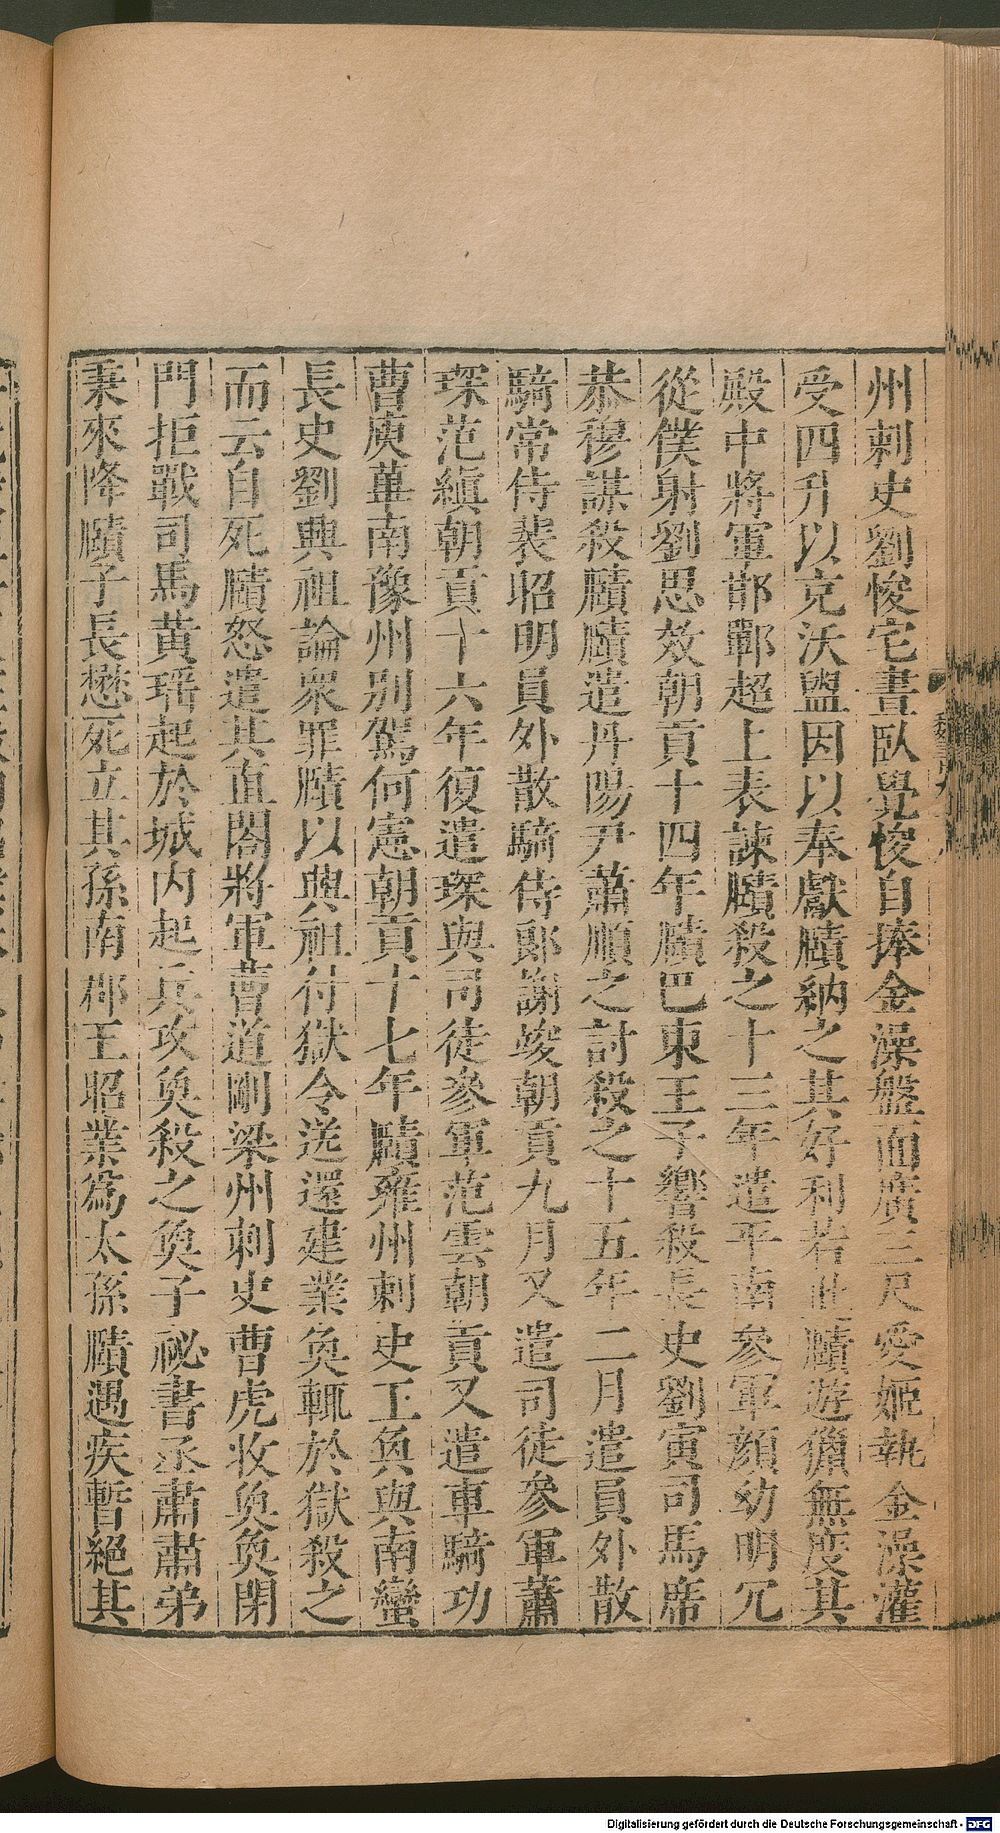 州刺史劉悛宅晝臥覺悛自捧金澡盤面廣三尺愛姬執金澡灌
受四升以充沃盥因以奉獻賾納之其好利若此賾遊獵無度其
殿中將軍邯鄲超上表諫賾殺之十三年遣平南參軍顏幼明冗
從僕射劉思效朝貢十四年賾巴東王子響殺長史劉寅司馬席
恭穆謀殺賾賾遣丹陽尹蕭順之討殺之十五年二月遣員外散
騎常侍裴昭明員外散騎侍郎謝竣朝貢九月又遣司徒參軍蕭
琛范縝朝貢十六年復遣琛與司徒參軍范雲朝貢又遣車騎功
曹庾蓽南豫州別駕何憲朝貢十七年賾雍州刺史王奐與南蠻
長史劉興祖論眾罪賾以興祖付獄令送還建業奐輒於獄殺之
而云自死賾怒遣其直閣將軍曹道剛梁州刺史曹虎收奐奐閉
門拒戰司馬黃瑶起於城內起兵攻奐殺之奐子祕書丞肅肅弟
秉來降賾子長懋死立其孫南郡王昭業為太孫賾遇疾暫絕其
Digitalisierung gefördert durch die Deutsche Forschungsgemeinschaft - DFG